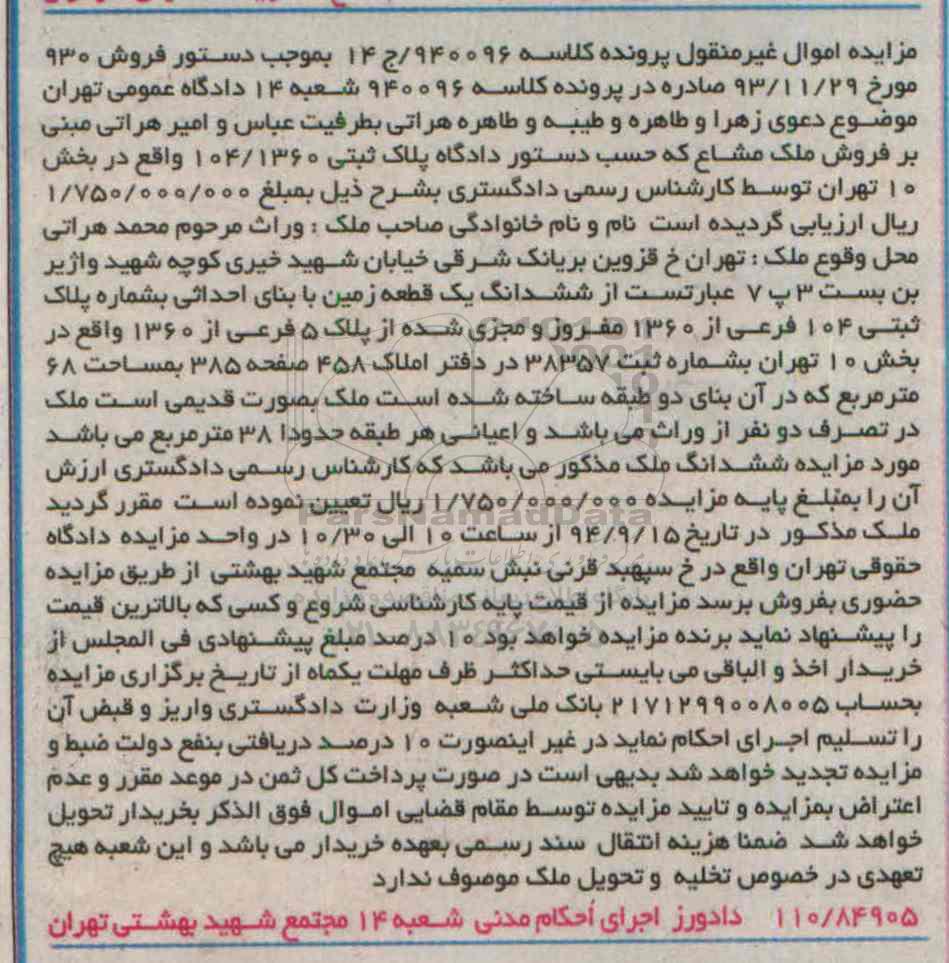 مزایده اموال غیرمنقول پرونده کلاسه ۹۴۰۰۹۶/ج ۱۴ بموجب دستور فروش ۹۳۰
مورخ ۹۳/۱۱/۲۹ صادره در پرونده کلاسه ۹۴۰۰۹۶ شعبه ۱۴ دادگاه عمومی تهران
موضوع دعوی زهرا و طاهره و طیبه و طاهره هراتی بطرفیت عباس و امیر هراتی مبنی
بر فروش ملک مشاع که حسب دستور دادگاه پلاک ثبتی ۱۰۴/۱۳۶۰ واقع در بخش
۱۰ تهران توسط کارشناس رسمی دادگستری بشرح ذیل بمبلغ ۱/۷۵۰/۰۰۰/۰۰۰
ریال ارزیابی گردیده است نام و نام خانوادگی صاحب ملک : وراث مرحوم محمد هراتی
محل وقوع ملک : تهران خ قزوین بریانک شرقی خیابان شهید خیری کوچه شهید واژیر
بن بست ۳ پ ۷ عبارتست از ششدانگ یک قطعه زمین با بنای احداثی بشماره پلاک
ثبتی ۱۰۴ فرعی از ۱۳۶۰ مفروز و مجزی شده از پلاک ۵ فرعی از ۱۳۶۰ واقع در
بخش ۱۰ تهران بشماره ثبت ۳۸۳۵۷ در دفتر املاک ۴۵۸ صفحه ۳۸۵ بمساحت ۶۸
مترمربع که در آن بنای دو طبقه ساخته شده است ملک بصورت قدیمی است ملک
در تصرف دو نفر از وراث می باشد و اعیانی هر طبقه حدودا ۳۸ مترمربع می باشد
مورد مزایده ششدانگ ملک مذکور می باشد که کارشناس رسمی دادگستری ارزش
آن را بمبلغ پایه مزایده ۱/۷۵۰/۰۰۰/۰۰۰ ریال تعیین نموده است مقرر گردید
ParsNamadData
ملک مذکور در تاریخ ۹۴/۹/۱۵ از ساعت ۱۰ الی ۱۰/۳۰ در واحد مزایده دادگاه
حقوقی تهران واقع در خ سپهبد قرنی نبش سمیه مجتمع شهید بهشتی از طریق مزایده
حضوری بفروش برسد مزایده از قیمت پایه کارشناسی شروع و کسی که بالاترین قیمت
را پیشنهاد نماید برنده مزایده خواهد بود ۱۰ درصد مبلغ پیشنهادی فی المجلس از
خریدار اخذ و الباقی می بایستی حداکثر ظرف مهلت یکماه از تاریخ برگزاری مزایده
بحساب ۲۱۷۱۲۹۹۰۰۸۰۰۵ بانک ملی شعبه وزارت دادگستری واریز و قبض آن
را تسلیم اجرای احکام نماید در غیر اینصورت ۱۰ درصد دریافتی بنفع دولت ضبط و
مزایده تجدید خواهد شد بدیهی است در صورت پرداخت کل ثمن در موعد مقرر و عدم
اعتراض بمزایده و تایید مزایده توسط مقام قضایی اموال فوق الذکر بخریدار تحویل
خواهد شد ضمنا هزینه انتقال سند رسمی بعهده خریدار می باشد و این شعبه هیچ
تعهدی در خصوص تخلیه و تحویل ملک موصوف ندارد
۱۱۰/۸۴۹۰۵ دادورز اجرای احکام مدنی شعبه ۱۴ مجتمع شهید بهشتی تهران